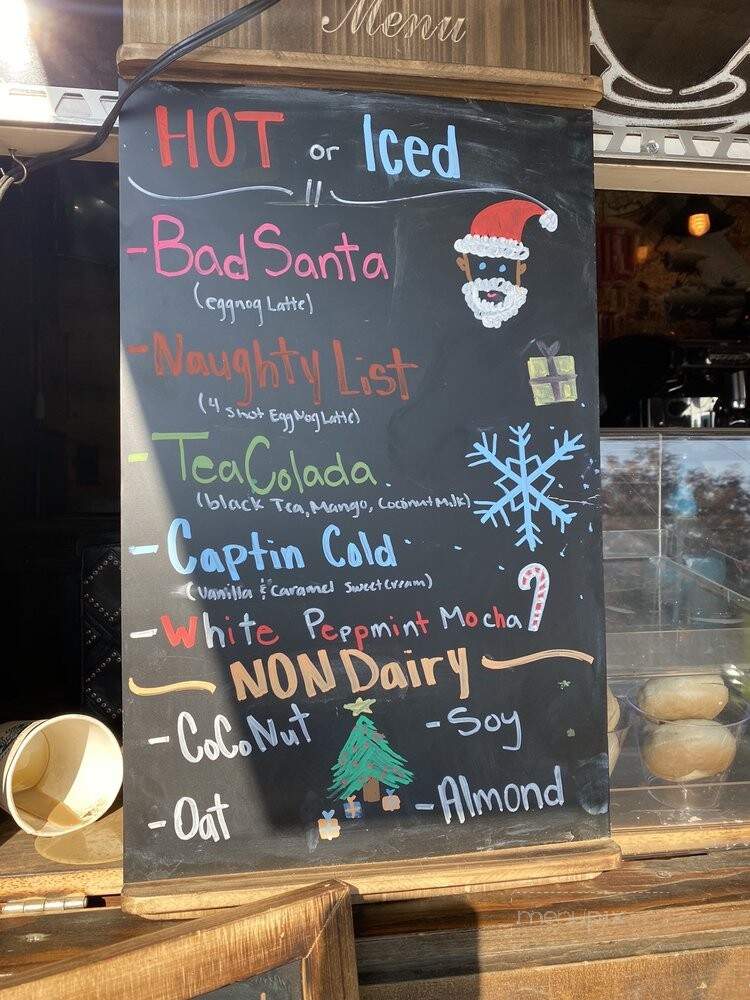 Menu
HOT or Iced
- Bad Santa
(eggnog Latte)
- Naughty List
(4 shot EggNog Latte)
- Tea Colada
(black Tea, Mango, Coconut Milk)
- Captin Cold
(Vanilla & Caramel Sweet Cream)
- White Peppmint Mocha
NON Dairy
- CoCoNut
- Soy
- Oat
- Almond
menupix